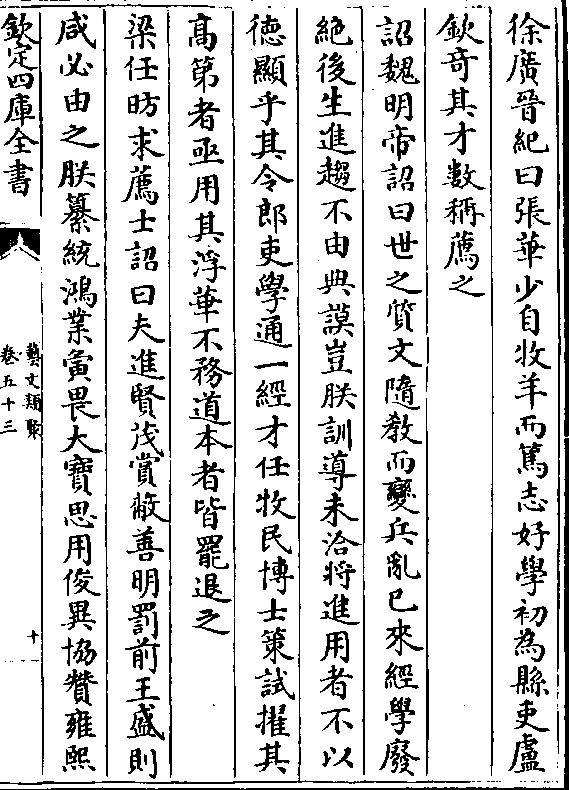 徐廣晉紀曰張華少自牧羊而篤志好學初為縣吏盧
欽奇其才數稱薦之
詔魏明帝詔曰世之質文隨教而變兵亂已來經學廢
絶後生進趨不由典謨豈朕訓導未洽将進用者不以
徳顯乎其令郎吏學通一經才任牧民博士策試擢其
髙第者亟用其浮華不務道本者皆罷退之
梁任昉求薦士詔曰夫進賢茂賞蔽善明罰前王盛則
咸必由之朕纂統鴻業寅畏大寶思用俊異協賛雍熙
欽定四庫全書
藝文類聚
卷五十三
十